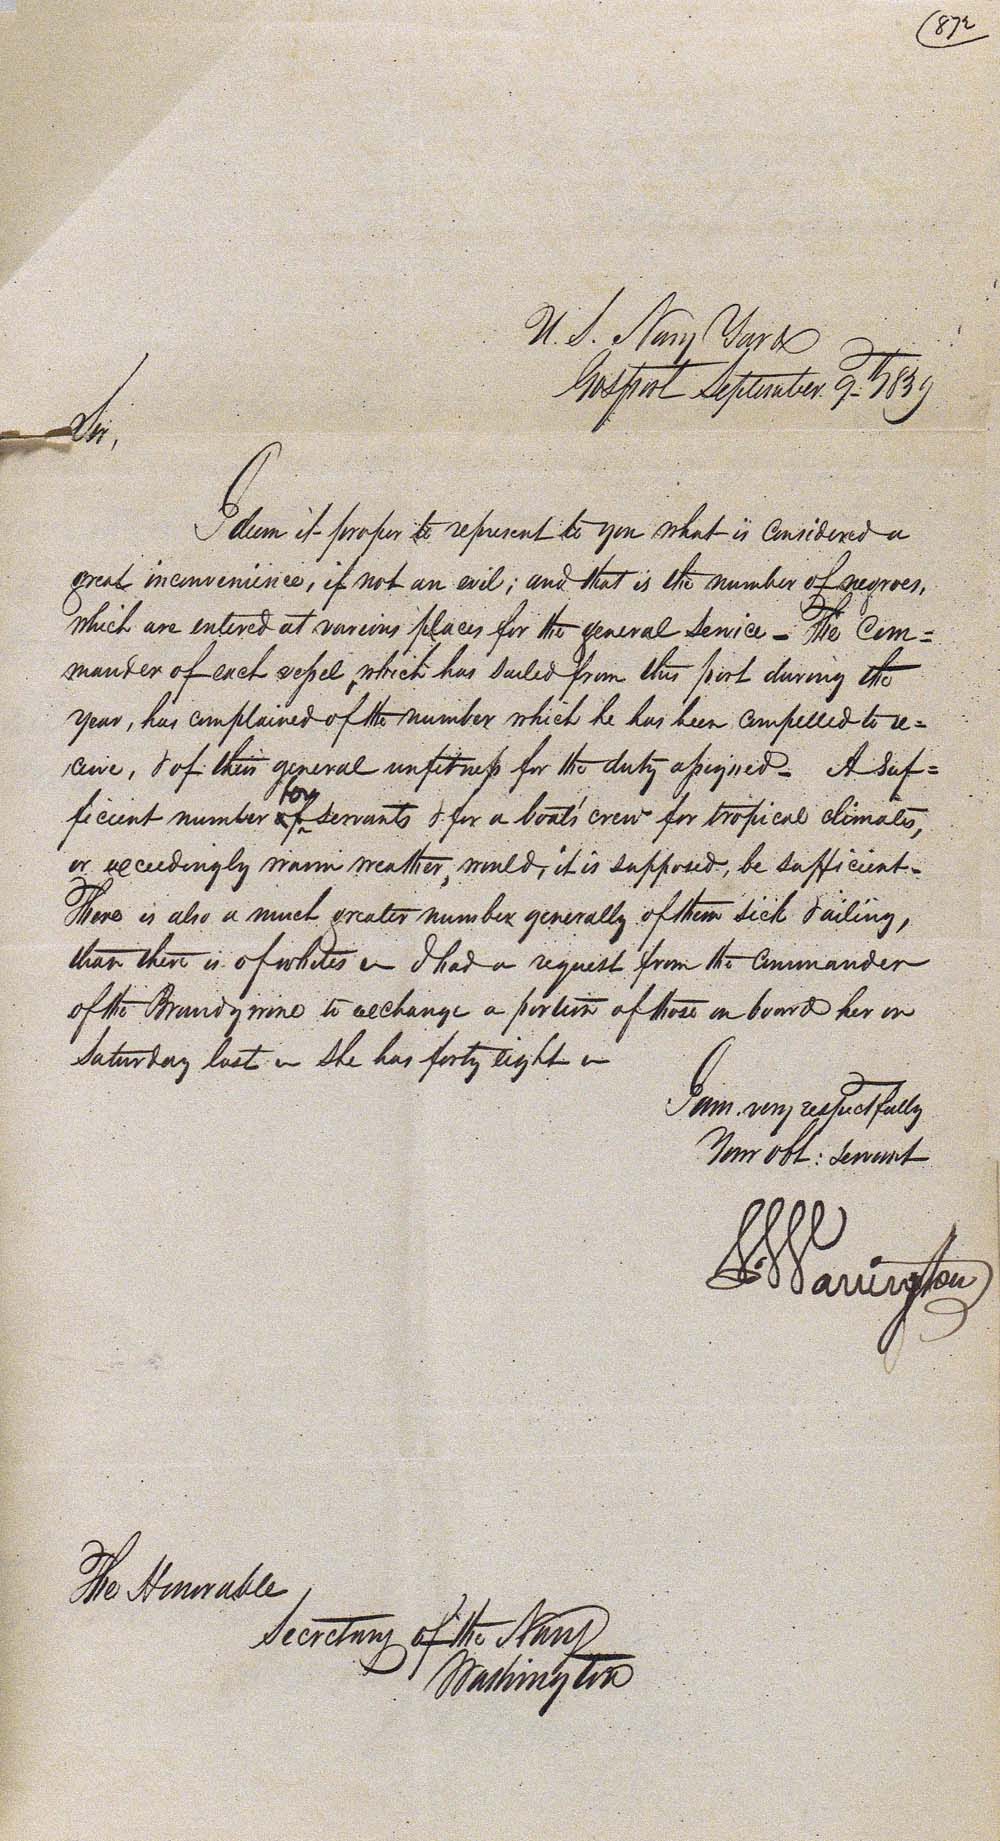 872
U. S. Navy Yard
Gosport September 9th 1839
Sir,
I deem it proper to represent to you what is considered a
great inconvenience, if not an evil; and that is the number of negroes,
which are entered at various places for the general service - The Com=
mander of each vessel, which has sailed from this port during the
year, has complained of the number which he has been compelled to re=
ceive, & of their general unfitness for the duty assigned - A Suf=
ficient number of for servants & for a boat's crew for tropical climates,
or exceedingly warm weather, would, it is supposed, be sufficient -
There is also a much greater number generally of them sick & ailing,
than there is of whites - I had a request from the Commander
of the Brandywine to exchange a portion of those on board her on
Saturday last - She has forty eight -
I am very respectfully
Your obt: servant
L. Warrington
The Honorable
Secretary of the Navy
Washington